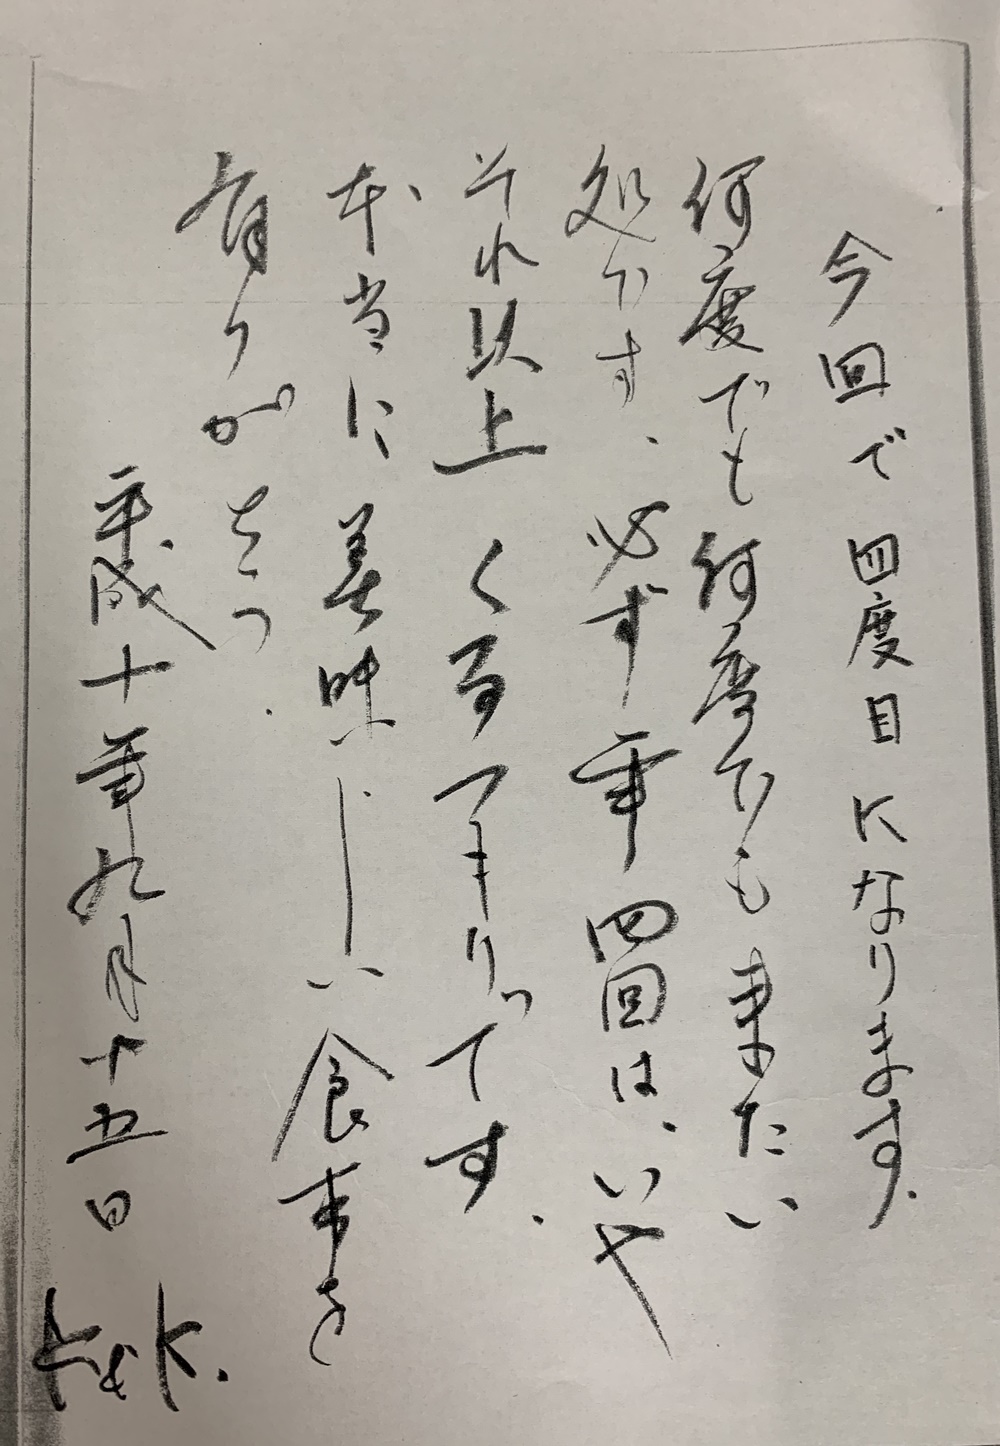 今回で四度目になります.
何度でも何度でも来たい
処です、必ず年四回は、いや
それ以上くるつもりです.
本当に美味しい食事を
有りがとう.
平成十年九月十五日
K&K.